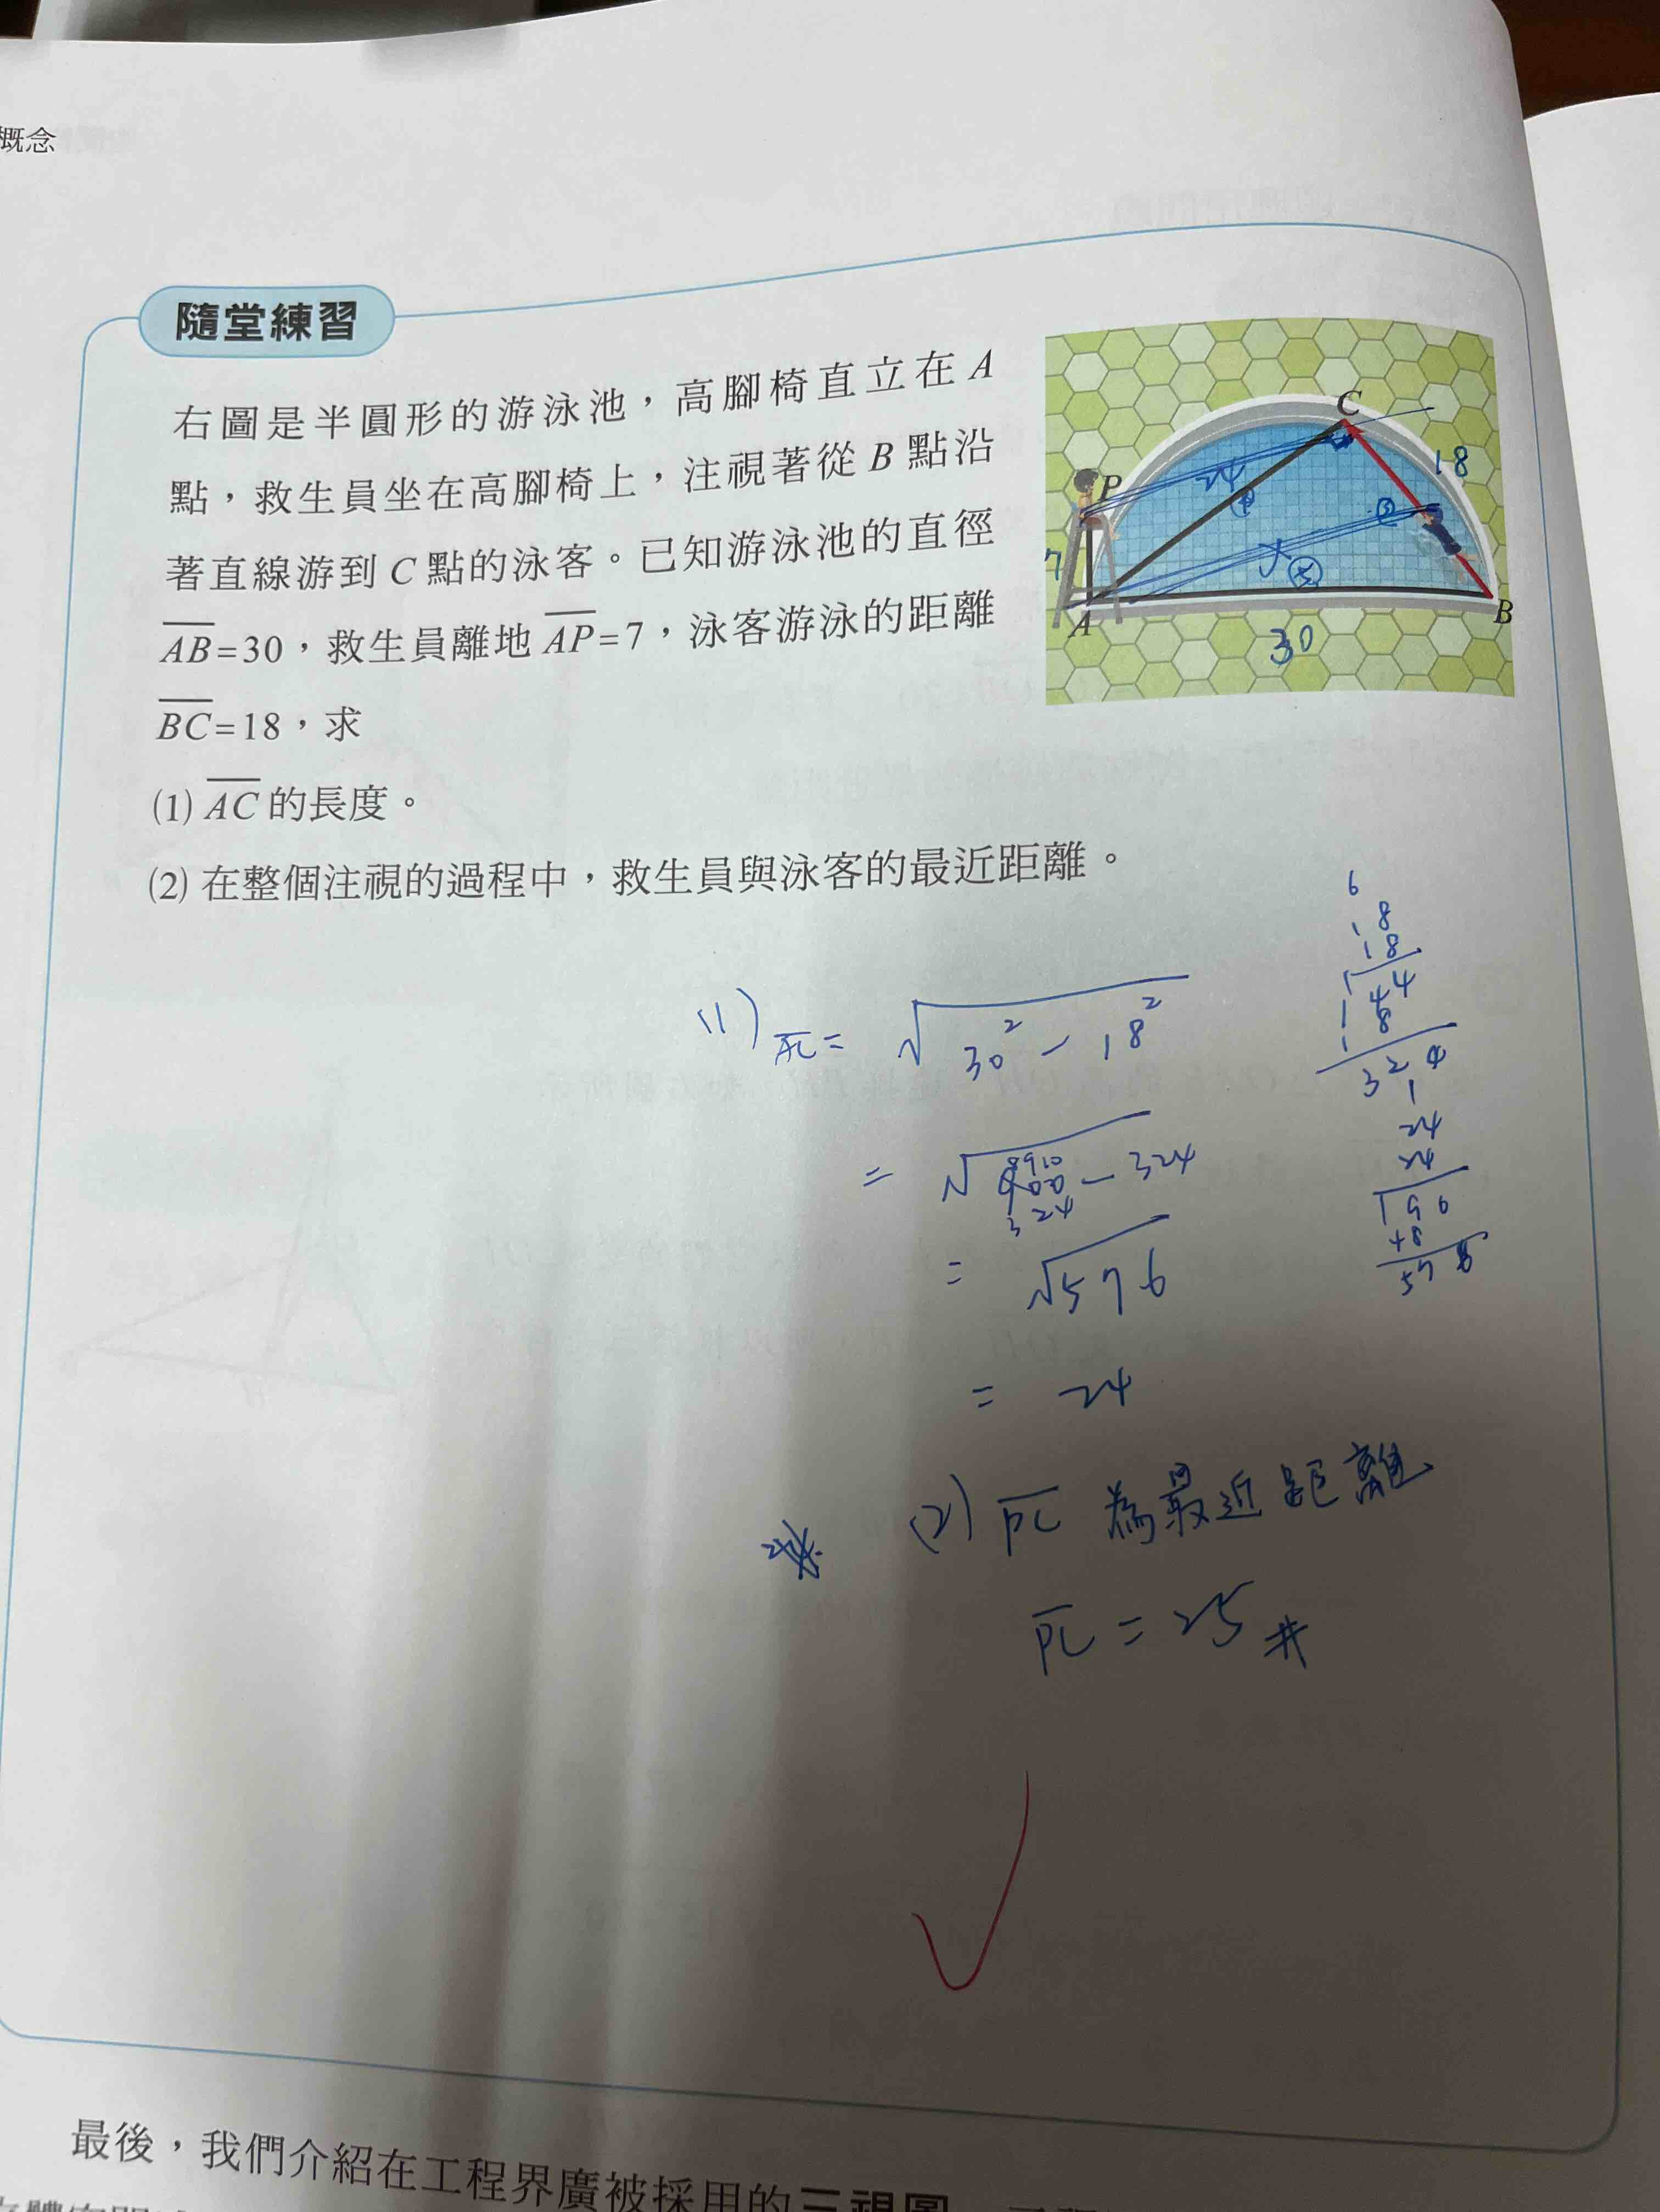 概念
隨堂練習
右圖是半圓形的游泳池，高腳椅直立在 A
點，救生員坐在高腳椅上，注視著從 B 點沿
著直線游到 C 點的泳客。已知游泳池的直徑
AB=30，救生員離地 AP=7，泳客游泳的距離
BC=18，求
(1) AC 的長度。
(2) 在整個注視的過程中，救生員與泳客的最近距離。
C
P
A
B
24
18
7
30
(1) AC = √30² - 18²
= √900 - 324
8 9 10
324
= √576
= 24
(2) PC 為最近距離
PC = 25 #
6
18
18
144
18
324
1
24
24
96
48
576
最後，我們介紹在工程界廣被採用的三視圖